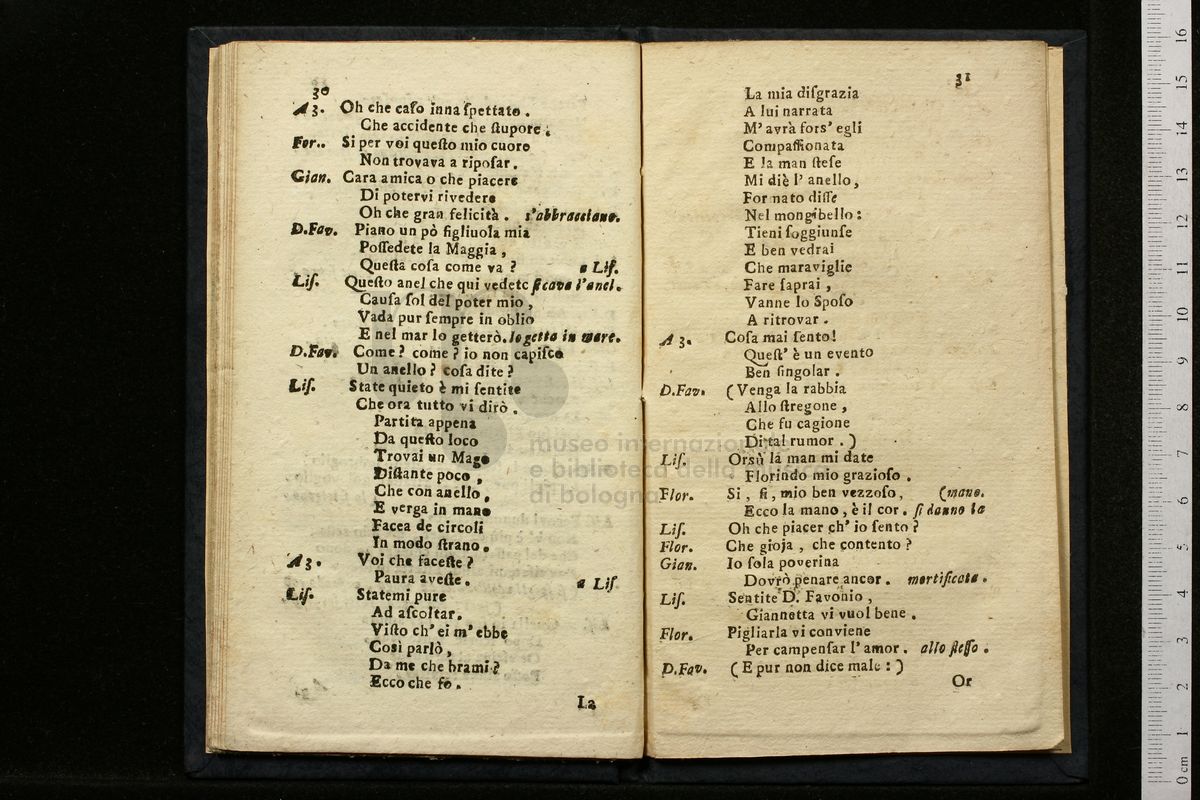 30
A 3. Oh che caſo innaſpettato.
Che accidente che ſtupore.
For.. Si per voi queſto mio cuore
Non trovava a ripoſar.
Gian. Cara amica o che piacere
Di potervi rivedere
Oh che gran felicità. s'abbracciano.
D.Fav. Piano un pò figliuola mia
Poſſedete la Maggia,
Queſta coſa come va? a Liſ.
Liſ. Queſto anel che qui vedete ſi cava l'anel.
Cauſa ſol del poter mio,
Vada pur ſempre in oblio
E nel mar lo getterò. lo getta in mare.
D.Fav. Come? come? io non capiſco
Un anello? coſa dite?
Liſ. State quieto è mi ſentite
Che ora tutto vi dirò.
Partita appena
Da queſto loco
Trovai un Mago
Diſtante poco,
Che con anello,
E verga in mano
Facea de circoli
In modo ſtrano.
A 3. Voi che faceſte?
Paura aveſte. a Liſ
Liſ. Statemi pure
Ad aſcoltar.
Viſto ch' ei m' ebbe
Così parlò,
Da me che brami?
Ecco che fo.
La
31
La mia diſgrazia
A lui narrata
M' avrà fors' egli
Compaſſionata
E la man ſteſe
Mi diè l' anello,
Formato diſſe
Nel mongibello:
Tieni ſoggiunſe
E ben vedrai
Che maraviglie
Fare ſaprai,
Vanne lo Spoſo
A ritrovar.
A 3. Coſa mai ſento!
Queſt' è un evento
Ben ſingolar.
D.Fav. (Venga la rabbia
Allo ſtregone,
Che fu cagione
Di tal rumor.)
Liſ. Orsù la man mi date
Florindo mio grazioſo.
Flor. Si, ſi, mio ben vezzoſo, (mano.
Ecco la mano, è il cor. ſi danno la
Liſ. Oh che piacer ch' io ſento?
Flor. Che gioja, che contento?
Gian. Io ſola poverina
Dovrò penare ancor. mortificata.
Liſ. Sentite D. Favonio,
Giannetta vi vuol bene.
Flor. Pigliarla vi conviene
Per campenſar l' amor. allo ſteſſo.
D.Fav. (E pur non dice male:)
Or
museo internazionale
e biblioteca della musica
di bologna
0 cm 1 2 3 4 5 6 7 8 9 10 11 12 13 14 15 16